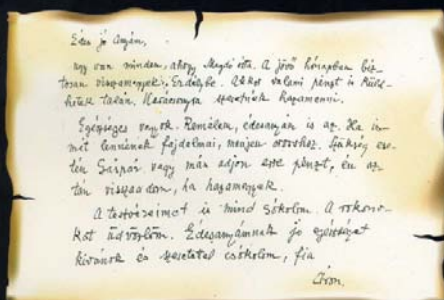 Édes jó Anyám,
úgy van minden, ahogy Magdó írta. A jövő hónapban biz-
tosan visszamegyek Erdélybe. Akkor valami pénzt is küld-
hetek talán. Karácsonyra szeretnék hazamenni.
Egészséges vagyok. Remélem, édesanyám is az. Ha is-
mét lennének fájdalmai, menjen orvoshoz. Szükség ese-
tén Gáspár vagy más adjon erre pénzt, én az-
tán visszaadom, ha hazamegyek.
A testvéreimet is mind csókolom. A rokono-
kat üdvözlöm. Édesanyámnak jó egészséget
kívánok és szeretettel csókolom, fia
Áron.